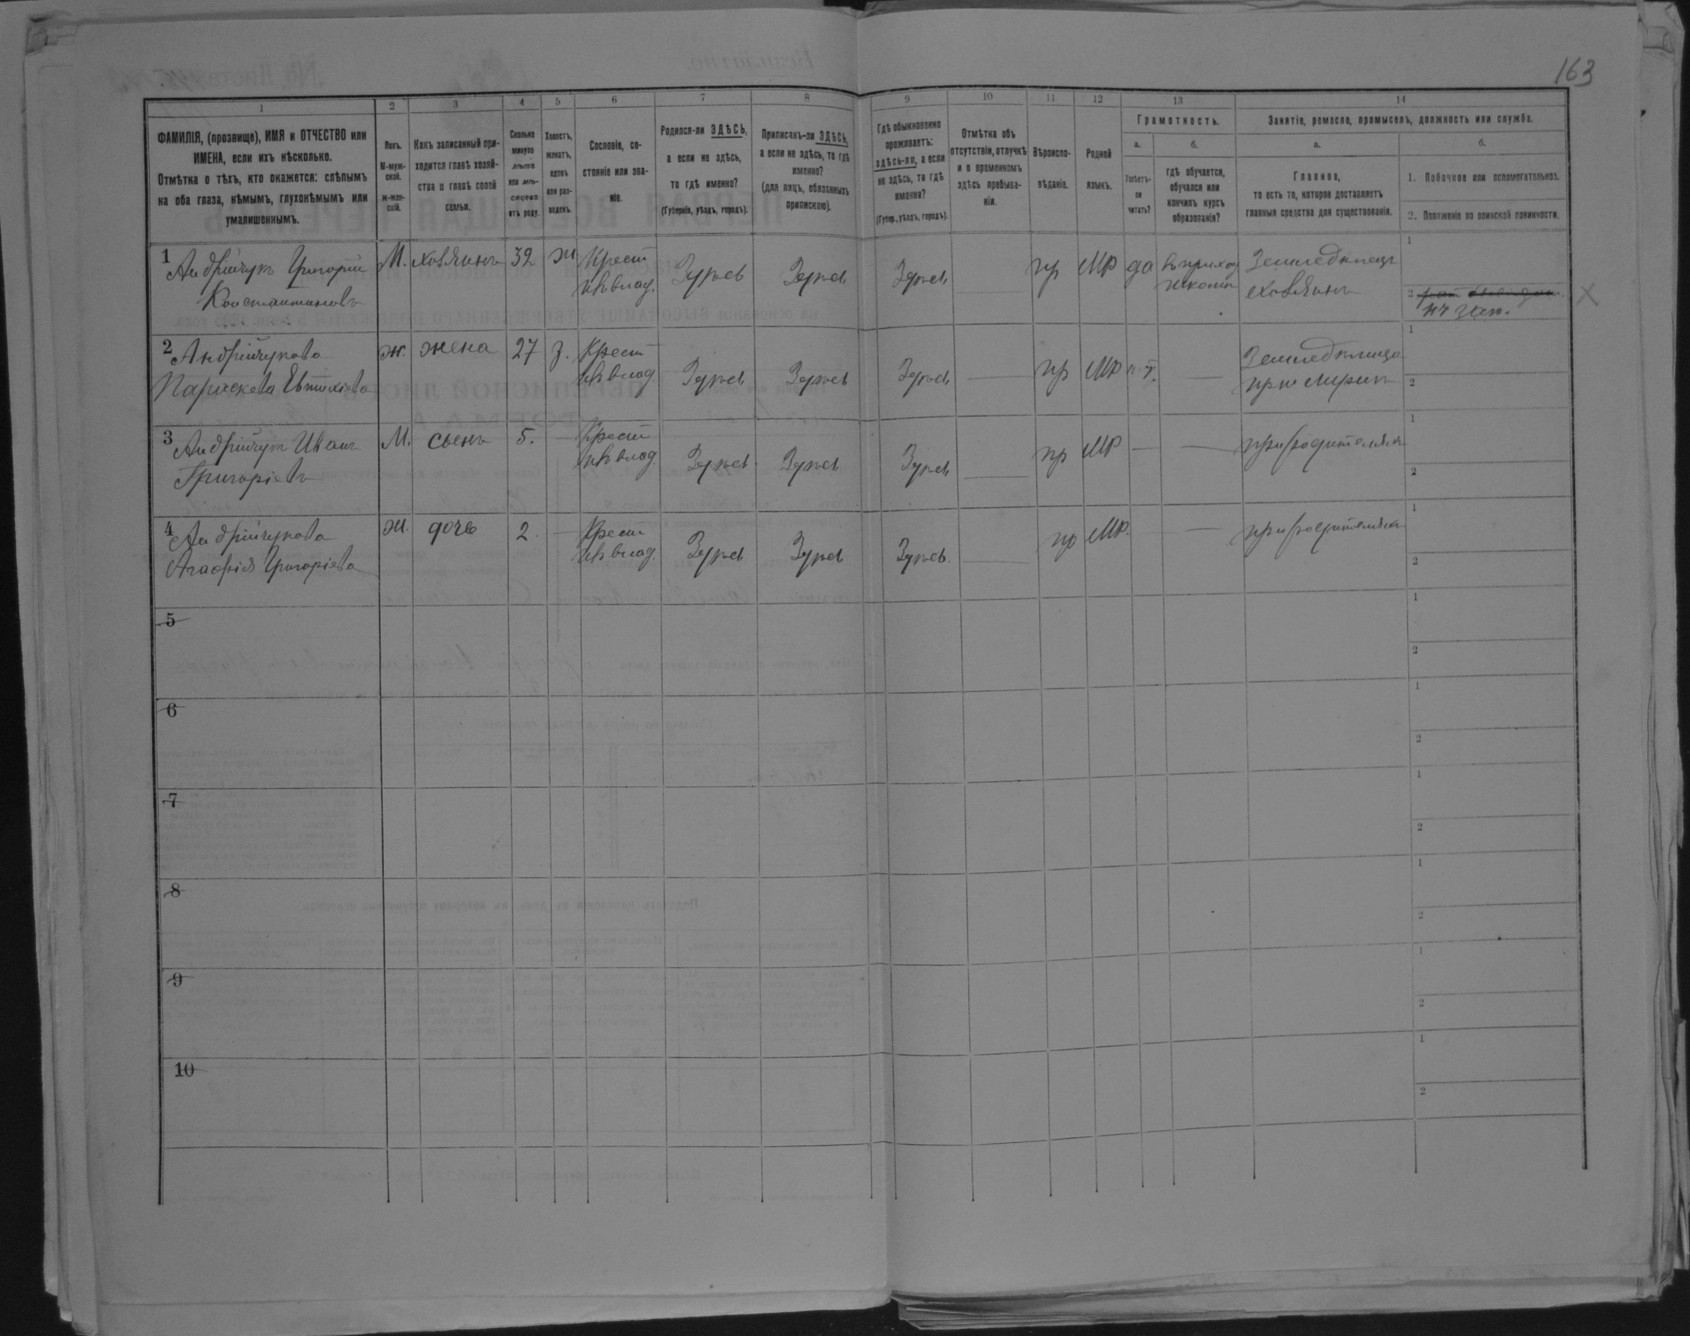 163
1 2 3 4 5 6 7 8 9 10 11 12 13 14
ФАМИЛІЯ, (прозвище), ИМЯ и ОТЧЕСТВО или
ИМЕНА, если ихъ нѣсколько.
Отмѣтка о тѣхъ, кто окажется: слѣпымъ
на оба глаза, нѣмымъ, глухонѣмымъ или
умалишеннымъ.
Полъ.
М-муж-
ской.
Ж-жен-
скій.
Какъ записанный при-
ходится главѣ хозяй-
ства и главѣ своей
семьи.
Сколько
минуло
лѣтъ
или мѣ-
сяцевъ
отъ роду.
Холостъ,
женатъ,
вдовъ
или раз-
веденъ.
Сословіе, со-
стояніе или зва-
ніе.
Родился-ли ЗДѢСЬ,
а если не здѣсь,
то гдѣ именно?
(Губернія, уѣздъ, городъ).
Приписанъ-ли ЗДѢСЬ,
а если не здѣсь, то гдѣ
именно?
(для лицъ, обязанныхъ
припискою).
Гдѣ обыкновенно
проживаетъ:
здѣсь-ли, а если
не здѣсь, то гдѣ
именно?
(Губер., уѣздъ, городъ).
Отмѣтка объ
отсутствіи, отлучкѣ
и о временномъ
здѣсь пребыва-
ніи.
Вѣроиспо-
вѣданіе.
Родной
языкъ.
Грамотность.
а.
Умѣетъ-
ли
читать?
б.
гдѣ обучается,
обучался или
кончилъ курсъ
образованія?
Занятіе, ремесло, промыселъ, должность или служба.
а.
Главное,
то есть то, которое доставляетъ
главныя средства для существованія.
б.
1. Побочное или вспомогательное.
2. Положеніе по воинской повинности.
1 Андрійчукъ Григорій
Константиновъ
М. хозяинъ 32 ж Крест
изъ влад.
Здѣсь Здѣсь Здѣсь — пр МР да въ приход
школѣ
Земледѣлецъ
хозяинъ
1
2
не зап.
2 Андрійчукова
Параскева Евтихіева
ж. жена 27 з. Крест
изъ влад
Здѣсь Здѣсь Здѣсь — пр МР нѣт. —
Земледѣлица
при мужѣ
1
2
3 Андрійчукъ Иванъ
Григоріевъ
М. сынъ 5. — Крест
изъ влад
Здѣсь Здѣсь Здѣсь — пр МР — — при родителяхъ
1
2
4 Андрійчукова
Агафія Григоріева
ж. дочь 2. — Крест
изъ влад.
Здѣсь Здѣсь Здѣсь — пр МР. — — при родителяхъ
1
2
5
1
2
6
1
2
7
1
2
8
1
2
9
1
2
10
1
2